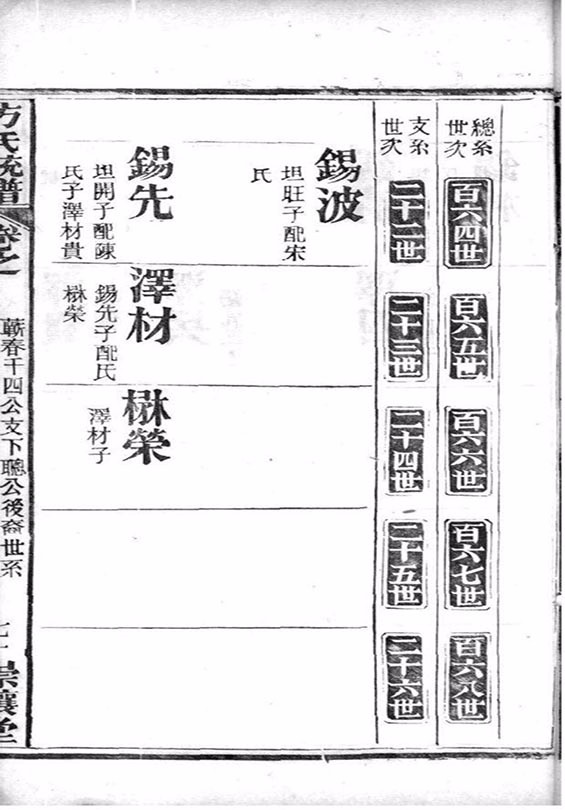 總系世次
百六四世
百六五世
百六六世
百六七世
百六八世
支系世次
二十二世
二十三世
二十四世
二十五世
二十六世
錫波
坦旺子配宋
氏
錫先
坦開子配陳
氏子澤材貴
澤材
錫先子配氏
楙榮
楙榮
澤材子
方氏統譜
卷之
蘄春千四公支下聰公後裔世系